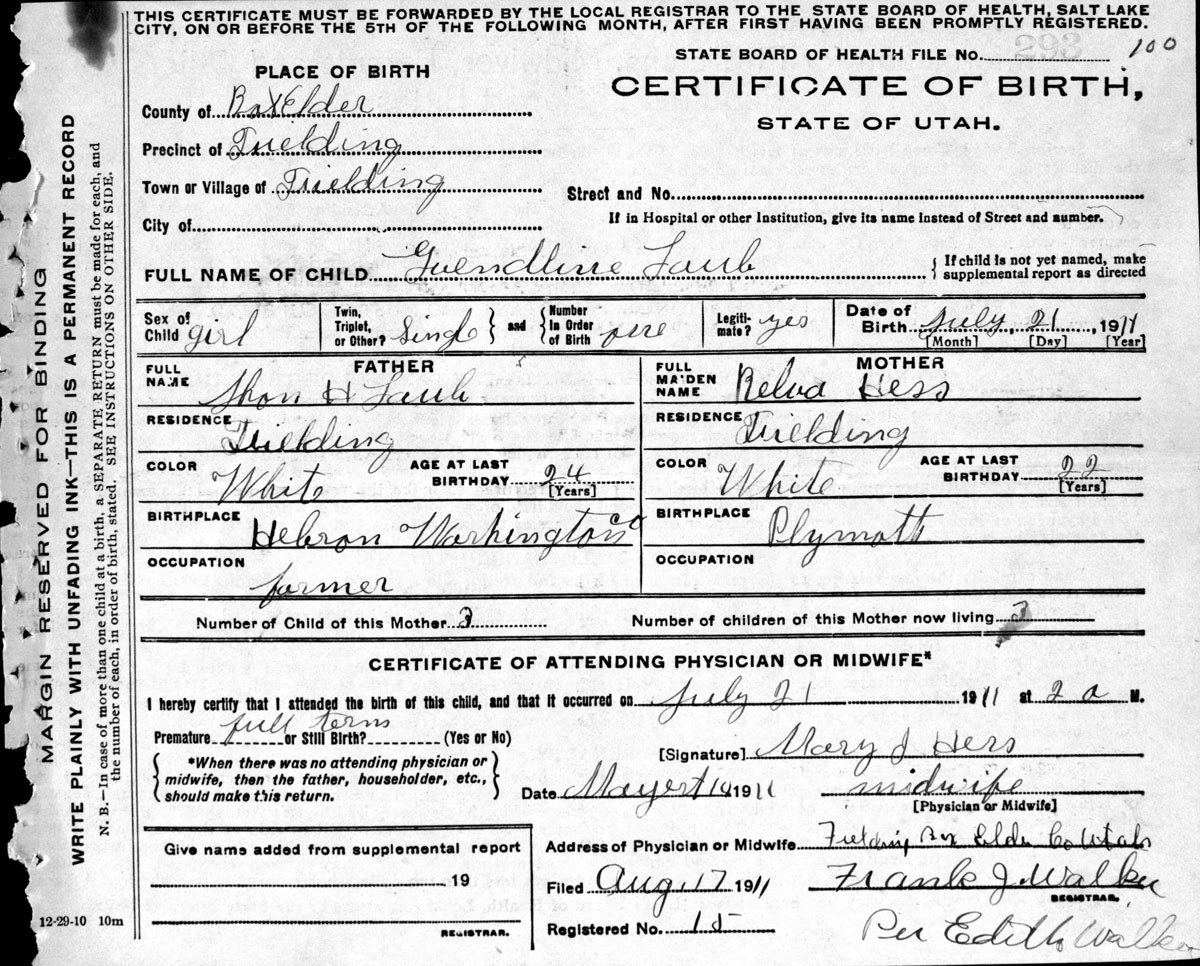 THIS CERTIFICATE MUST BE FORWARDED BY THE LOCAL REGISTRAR TO THE STATE BOARD OF HEALTH, SALT LAKE
CITY, ON OR BEFORE THE 5TH OF THE FOLLOWING MONTH, AFTER FIRST HAVING BEEN PROMPTLY REGISTERED.
293
STATE BOARD OF HEALTH FILE No. 100
PLACE OF BIRTH
CERTIFICATE OF BIRTH,
STATE OF UTAH.
County of BoxElder
Precinct of Fielding
Town or Village of Fielding
Street and No.
City of
If in Hospital or other Institution, give its name instead of Street and number.
FULL NAME OF CHILD Guendline Laub
{ If child is not yet named, make
supplemental report as directed
Sex of Child girl
Twin, Triplet, or Other? Single } and { Number In Order of Birth one
Legiti-mate? yes
Date of Birth July 21 1911
[Month] [Day] [Year]
FATHER
FULL NAME Shon H Laub
RESIDENCE Fielding
COLOR White AGE AT LAST BIRTHDAY 24 [Years]
BIRTHPLACE Hebron Washington Co
OCCUPATION farmer
MOTHER
FULL MAIDEN NAME Relva Hess
RESIDENCE Fielding
COLOR White AGE AT LAST BIRTHDAY 22 [Years]
BIRTHPLACE Plymoth
OCCUPATION
Number of Child of this Mother 3 Number of children of this Mother now living 3
CERTIFICATE OF ATTENDING PHYSICIAN OR MIDWIFE*
I hereby certify that I attended the birth of this child, and that it occurred on July 21 1911 at 2 a M.
Premature full term or Still Birth? (Yes or No)
{ *When there was no attending physician or
midwife, then the father, householder, etc.,
should make this return. }
[Signature] Mary J Hess
Date 14 1911 midwife
[Physician or Midwife]
Give name added from supplemental report
19
REGISTRAR.
Address of Physician or Midwife Fielding Box Elder Co Utah
Filed Aug. 17 1911 Frank J. Walker
REGISTRAR.
Registered No. 15 Per Edith Walker
12-29-10 10m
MARGIN RESERVED FOR BINDING
WRITE PLAINLY WITH UNFADING INK—THIS IS A PERMANENT RECORD
N. B.—In case of more than one child at a birth, a SEPARATE RETURN must be made for each, and
the number of each, in order of birth, stated. SEE INSTRUCTIONS ON OTHER SIDE.